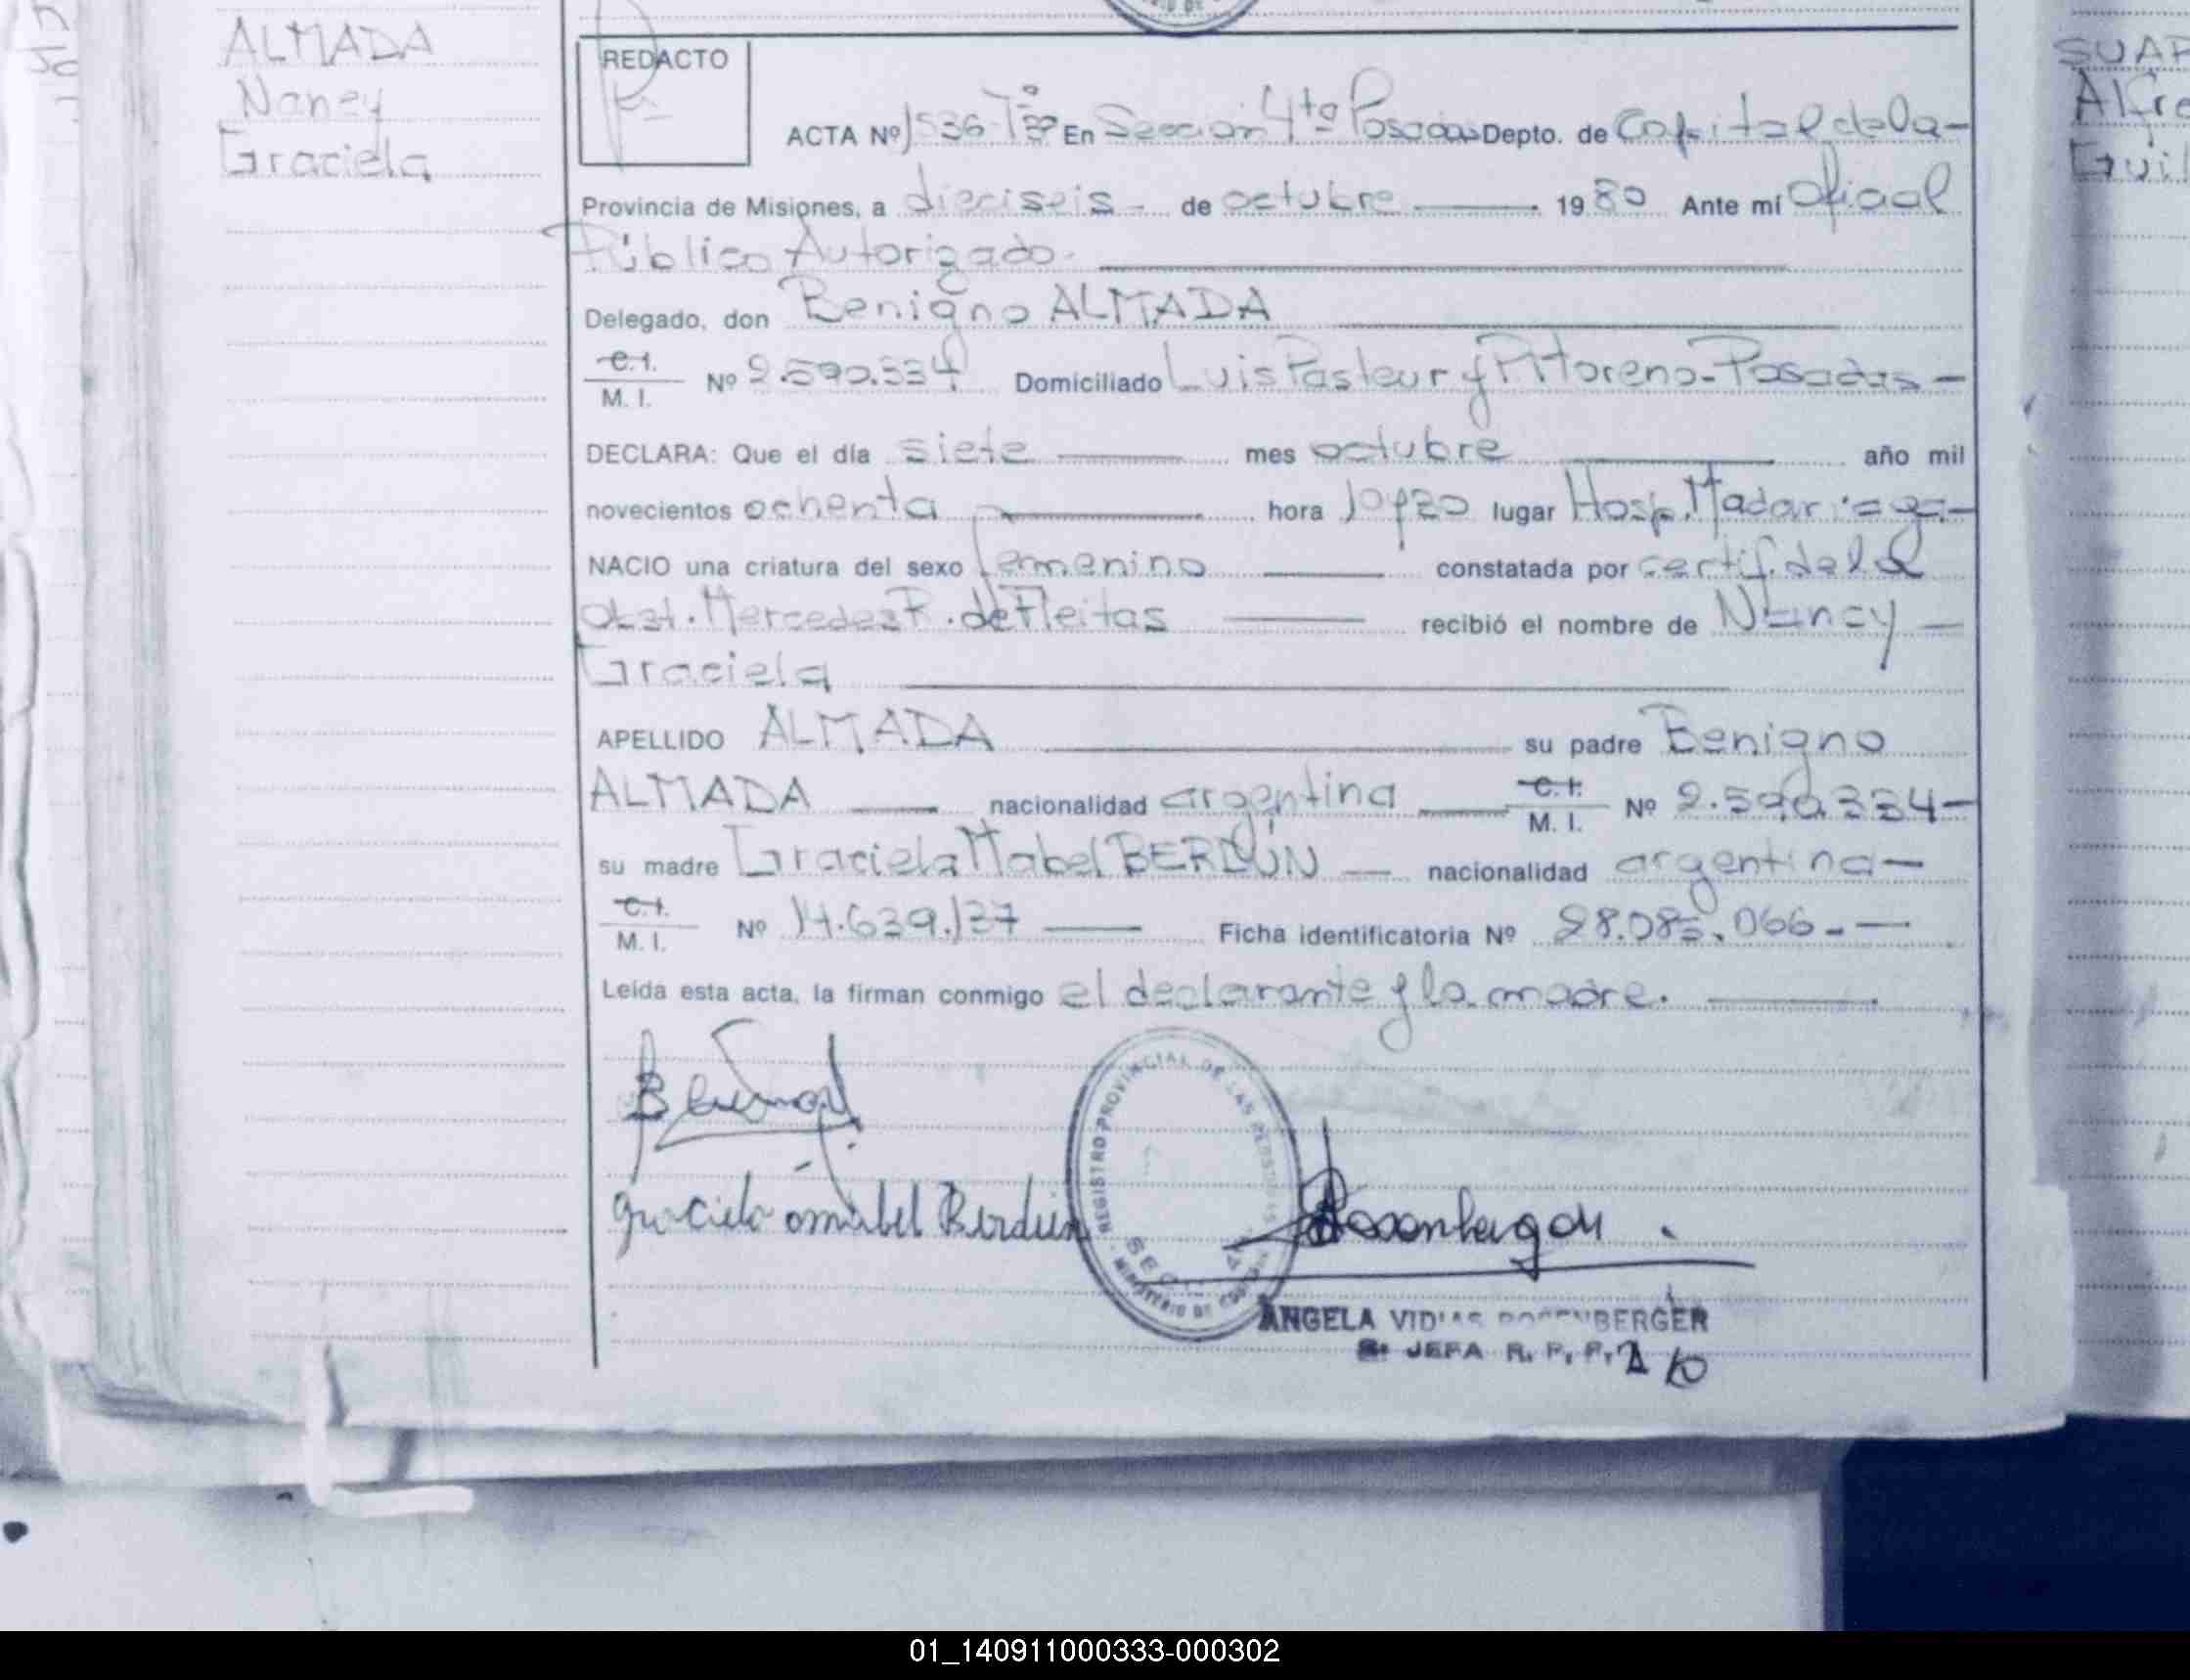 ALMADA
Nancy
Graciela
REDACTO
ACTA Nº 1536-Tº3º En Sección 4ta Posadas Depto. de Capital de la-
Provincia de Misiones, a dieciseis - de octubre 1980 Ante mí Oficial
Público Autorizado.
Delegado, don Benigno ALMADA
C.I.
M. I. Nº 2.590.334 Domiciliado Luis Pasteur y P. Moreno-Posadas-
DECLARA: Que el día siete mes octubre año mil
novecientos ochenta hora 10y20 lugar Hosp. Madariaga-
NACIO una criatura del sexo femenino constatada por certif. de la
Obst. Mercedes R. de Fleitas recibió el nombre de Nancy -
Graciela
APELLIDO ALMADA su padre Benigno
ALMADA nacionalidad argentina C.I. M. I. Nº 2.590.334-
su madre Graciela Mabel BERDÚN nacionalidad argentina-
C.I.
M. I. Nº 14.639.137 Ficha identificatoria Nº 28.085.066.-
Leída esta acta, la firman conmigo el declarante y la madre.
REGISTRO PROVINCIAL DE LAS PERSONAS
Graciela Mabel Berdún
MINISTERIO DE
ANGELA ROSENBERGER
JEFA R. P. P.
SUAR
Alfre
Guil
01_140911000333-000302